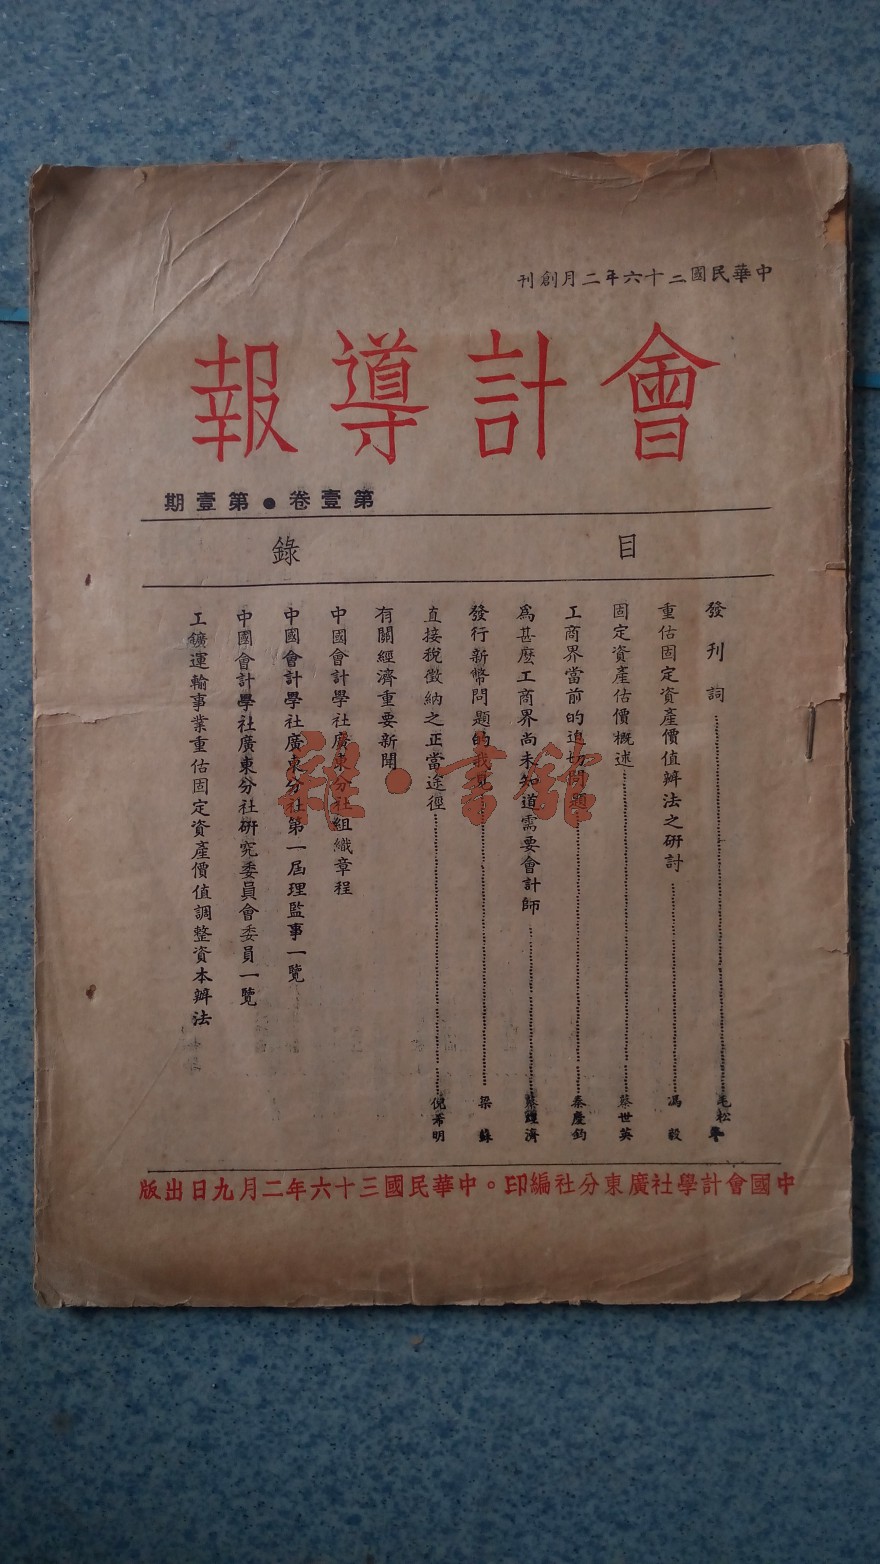 中華民國三十六年二月創刊
會計導報
第壹卷●第壹期
目錄
發刊詞……毛松年
重估固定資產價值辦法之研討……馮毅
固定資產估價概述……蔡世英
工商界當前的迫切問題……秦慶鈞
為甚麽工商界尚未知道需要會計師……蔡經濟
發行新幣問題的我見……梁蘇
直接稅徵納之正當途徑……倪希明
有關經濟重要新聞
中國會計學社廣東分社組織章程
中國會計學社廣東分社第一屆理監事一覽
中國會計學社廣東分社研究委員會委員一覽
工鑛運輸事業重估固定資產價值調整資本辦法
中國會計學社廣東分社編印。中華民國三十六年二月九日出版
雜·書館